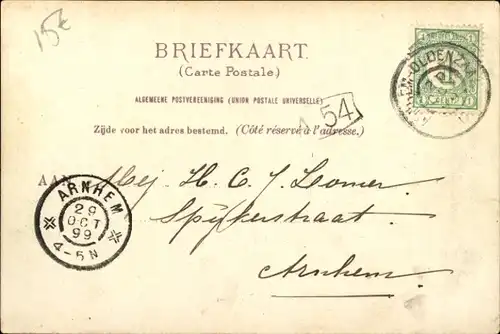 15€
BRIEFKAART.
(Carte Postale.)
ALGEMEENE POSTVEREENIGING (UNION POSTALE UNIVERSELLE)
54
Zijde voor het adres bestemd. (Côté réservé à l'adresse.)
AAN Mej. H. C. J.
Spijkerstraat.
Arnhem.
ARNHEM
29
OCT
99
4-5N
OLDENZAAL